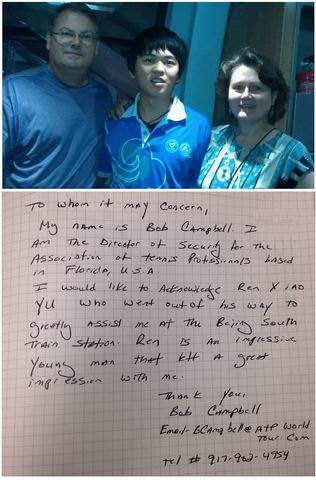 To whom it may concern,
My name is Bob Campbell. I
Am The Director of Security for The
Association of tennis Professionals based
in Florida, U.S.A.
I would like to Acknowledge Ren Xiao
YU who went out of his way to
greatly assist me at The Bejing South
Train station. Ren is An impressive
Young man that left A great
impression with me.
Thank You,
Bob Campbell
Email- BCampbell@ATP World
Tour.Com
tel # 917-902-4954